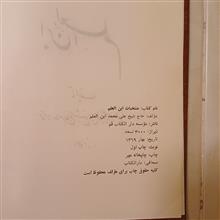 ابن العلم
نام کتاب: منتخبات ابن العلم
مؤلف: حاج شیخ علی محمد ابن العلم
ناشر: مؤسسه دار الکتاب قم
تیراژ: ۳۰۰۰ نسخه
تاریخ: بهار ۱۳۶۹
نوبت: چاپ اول
چاپ: چاپخانه مهر
صحافی: دارالکتاب
کلیه حقوق چاپ برای مؤلف محفوظ است